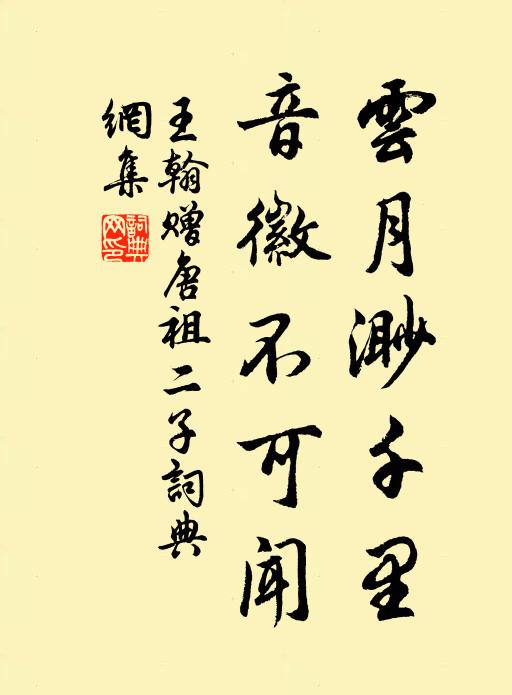 雲月渺千里
音徽不可聞
王翰贈唐祖二子詞典
網集
詞典网印